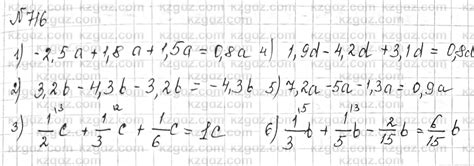 №716
1) -2,5a+1,8a+1,5a=0,8a 4) 1,9d-4,2d+3,1d=0,8d
2) 3,2b-4,3b-3,2b=-4,3b 5) 7,2a-5a-1,3a=0,9a
3) 1/2 c + 1/3 c + 1/6 c = 1c 6) 1/3 b + 1/5 b - 2/15 b = 6/15 b